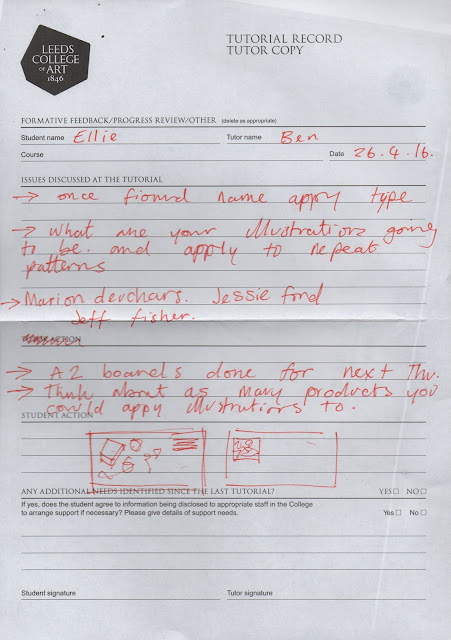 LEEDS
COLLEGE
OF ART
1846
TUTORIAL RECORD
TUTOR COPY
FORMATIVE FEEDBACK/PROGRESS REVIEW/OTHER (delete as appropriate)
Student name Ellie Tutor name Ben
Course Date 26.4.16.
ISSUES DISCUSSED AT THE TUTORIAL
→ once fiound name appy type
→ What are your illustrations going
to be. and apply to repeat
patterns
→ Marion deuchars. Jessie ford
Jeff fisher.
ACTION
→ A2 boards done for next Thu.
→ Think about as many products you
could appy illustrations to.
STUDENT ACTION
ANY ADDITIONAL NEEDS IDENTIFIED SINCE THE LAST TUTORIAL? YES □ NO □
If yes, does the student agree to information being disclosed to appropriate staff in the College Yes □ No □
to arrange support if necessary? Please give details of support needs.
Student signature Tutor signature